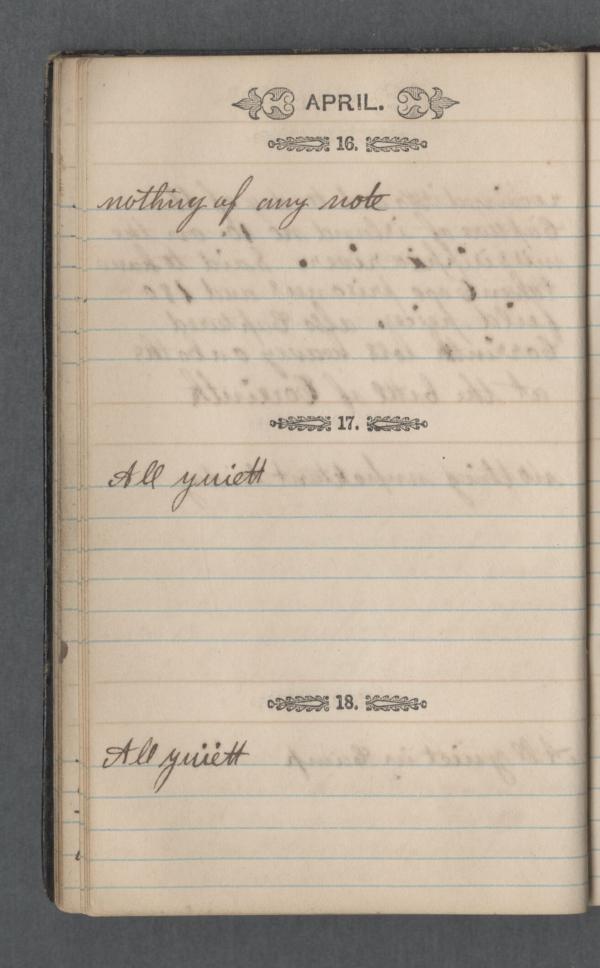 APRIL.
16.
nothing of any note
17.
All quiett
18.
All quiett